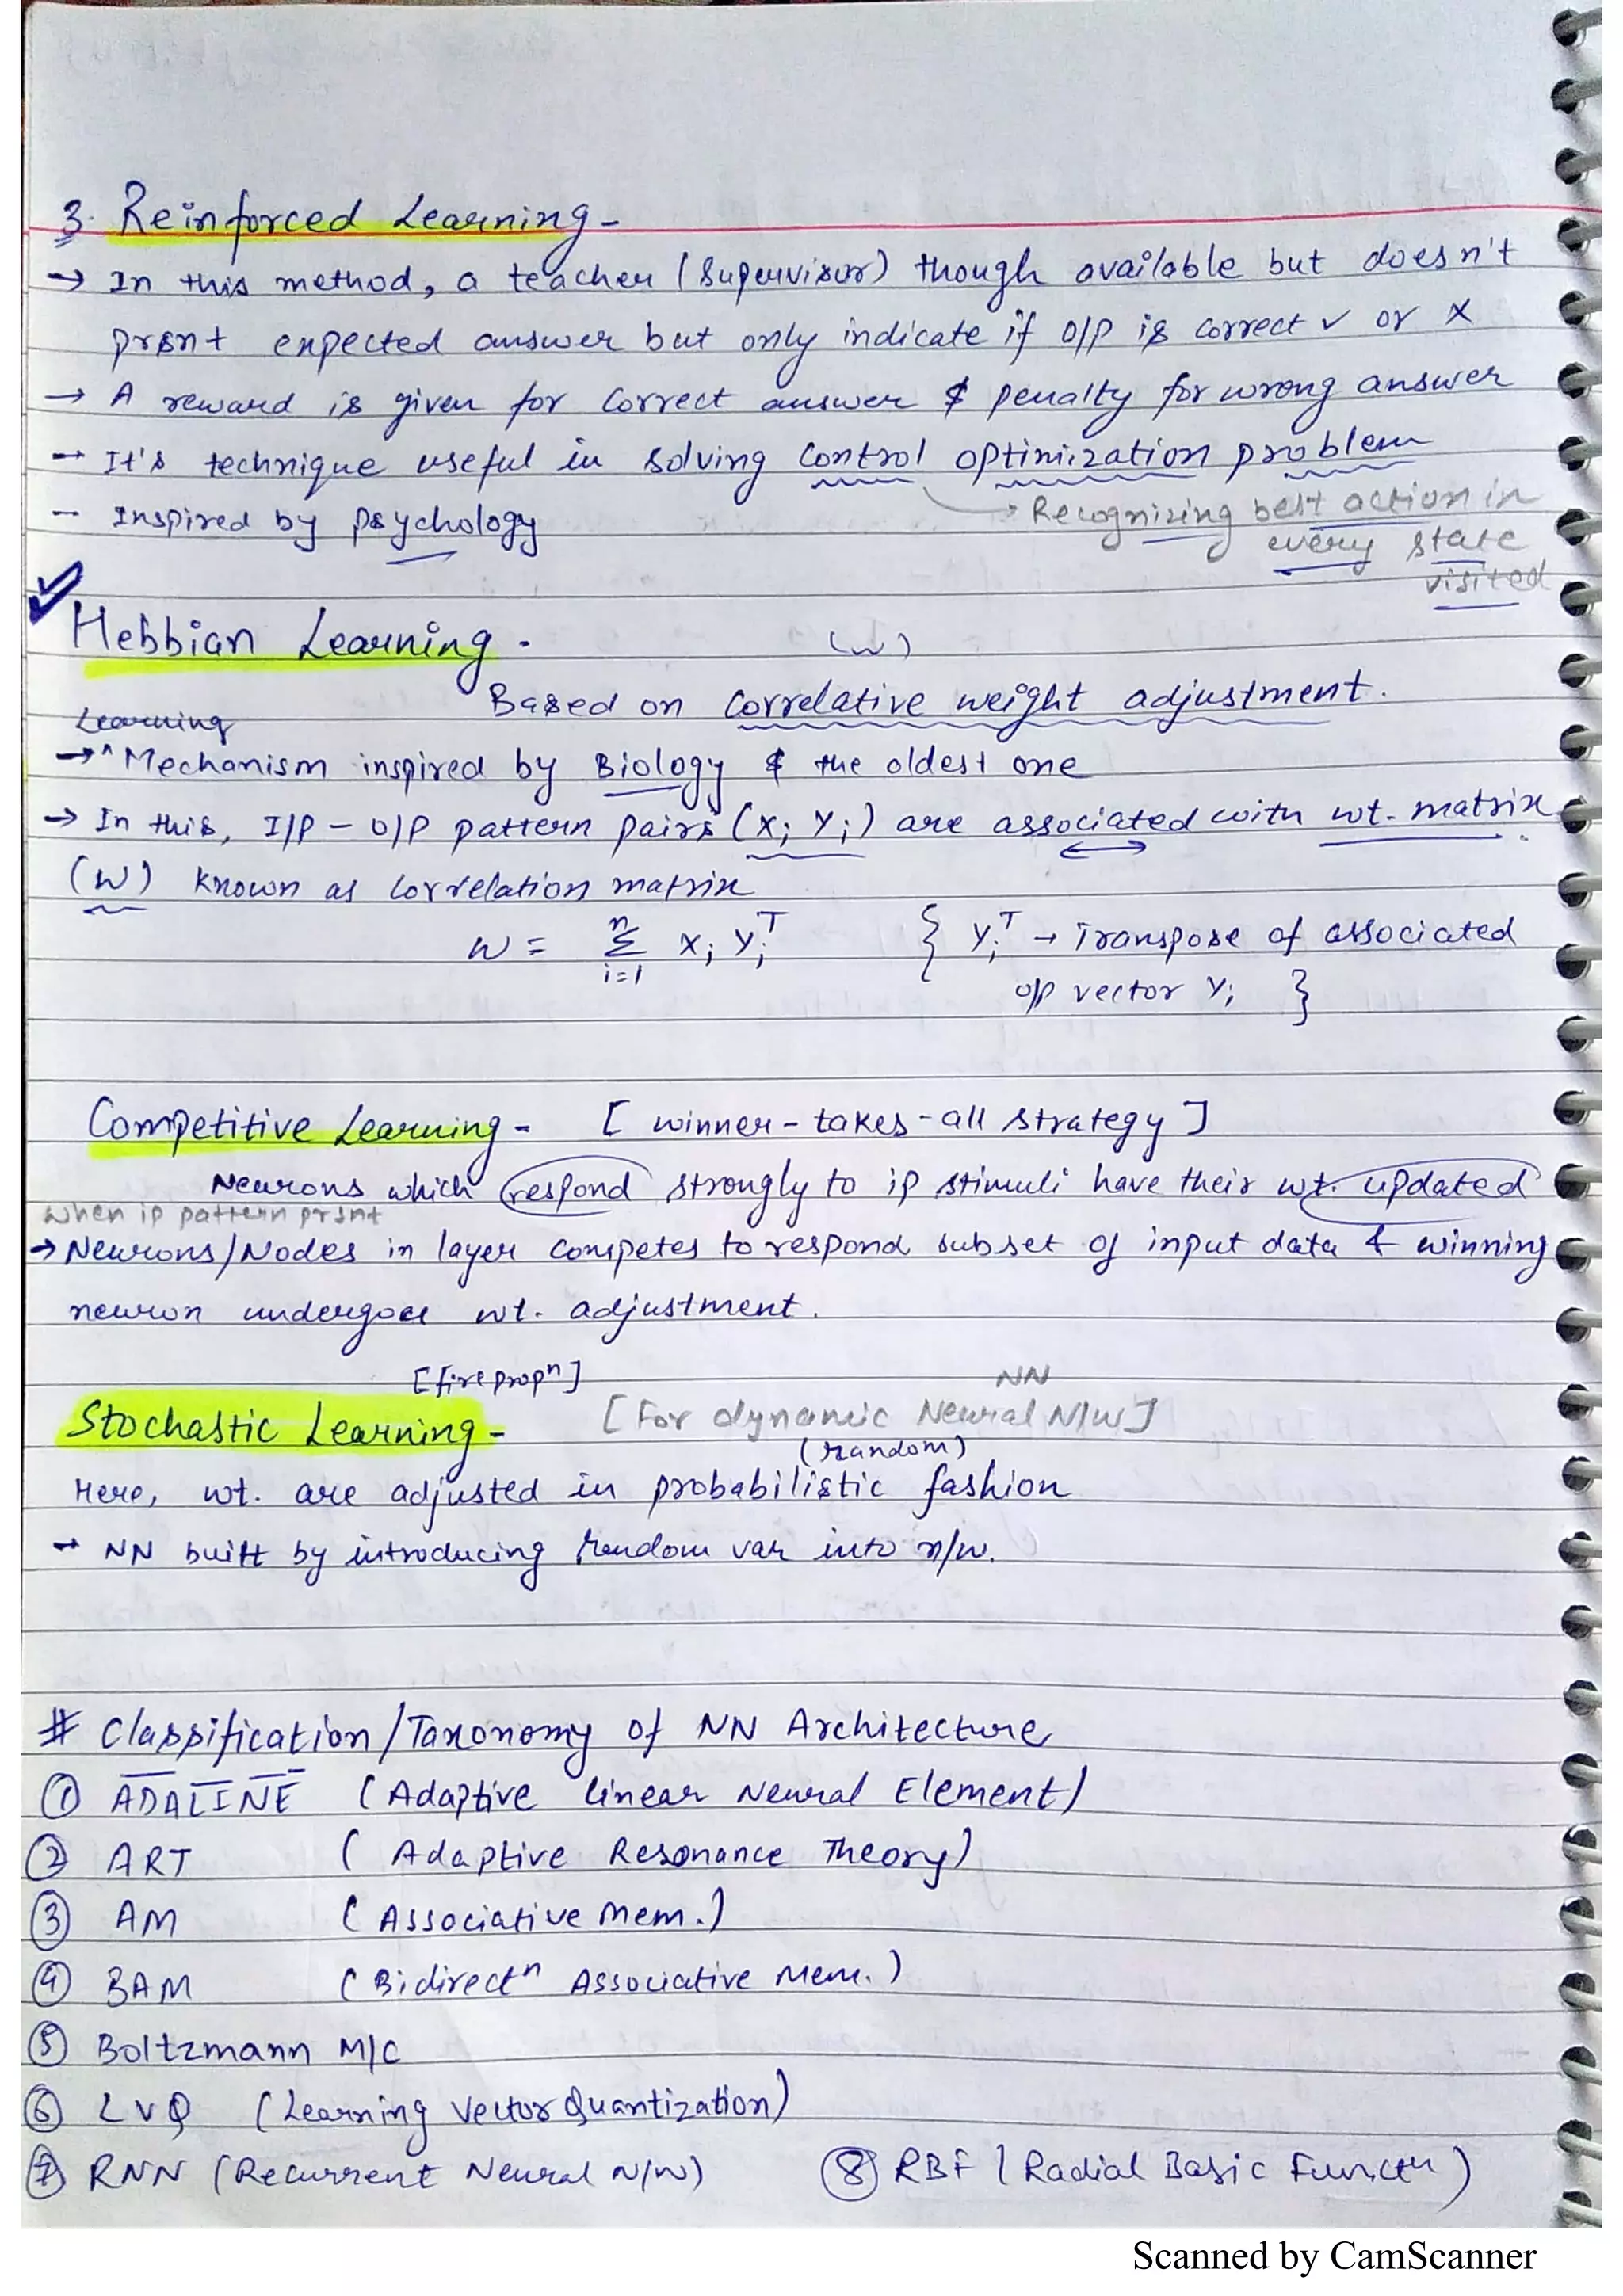 3. Reinforced Learning -
→ In this method, a teacher (Supervisor) though available but doesn't
prsnt expected answer but only indicate if O/P is correct ✓ or X
→ A reward is given for correct answer & penalty for wrong answer
→ It's technique useful in solving control optimization problem
→ Recognizing best action in
- Inspired by psychology
every state
visited
✓
Hebbian Learning -
(W)
Based on correlative weight adjustment.
Learning
→ ^ Mechanism inspired by Biology & the oldest one
→ In this, I/P - O/P pattern pairs (Xi Yi) are associated with wt. matrix
(W) known as correlation matrix
W = n Σ i=1 Xi Yi^T { Yi^T → Transpose of associated
o/p vector Yi }
Competitive Learning - [ winner - takes - all strategy ]
Neurons which respond strongly to ip stimuli have their wt. updated
when ip pattern prsnt
→ Neurons/Nodes in layer competes to respond subset of input data & winning
neuron undergoes wt. adjustment.
[fire propn] NN
Stochastic Learning - [For dynamic Neural N/W]
(random)
Here, wt. are adjusted in probabilistic fashion
→ NN built by introducing random var into n/w.
# Classification/Taxonomy of NN Architecture
① ADALINE (Adaptive linear Neural Element)
② ART (Adaptive Resonance Theory)
③ AM (Associative Mem.)
④ BAM (Bidirectn Associative Mem.)
⑤ Boltzmann M/C
⑥ LVQ (Learning Vector Quantization)
⑦ RNN (Recurrent Neural N/W) ⑧ RBF (Radial Basic Functn)
Scanned by CamScanner